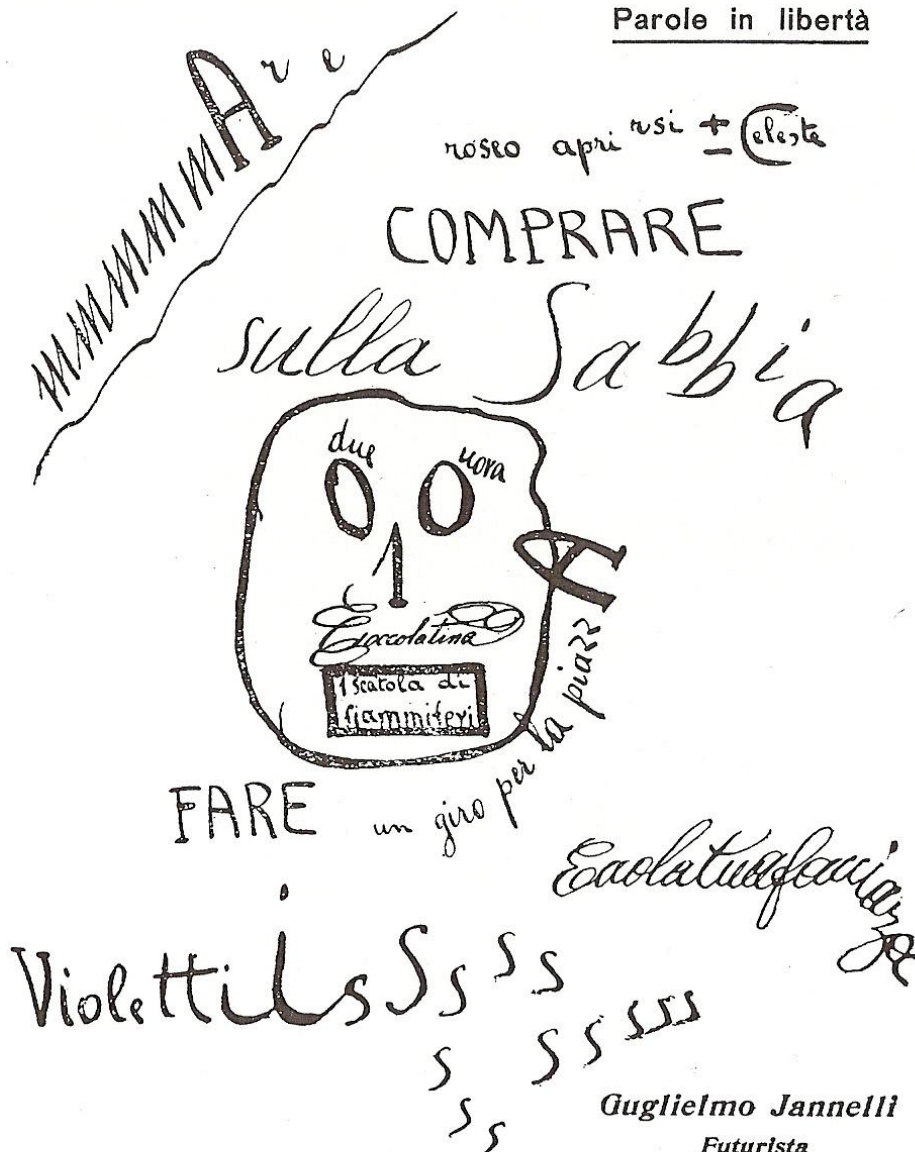 Parole in libertà
mmmmmmAre
roseo aprirsi ± Celeste
COMPRARE
sulla Sabbia
due uova
1
Cioccolatina
1 scatola di
fiammiferi
FARE un giro per la piazzA
Eccolatuafacciazza
ViolettiiissSsss
sssss
s
ss
Guglielmo Jannelli
Futurista